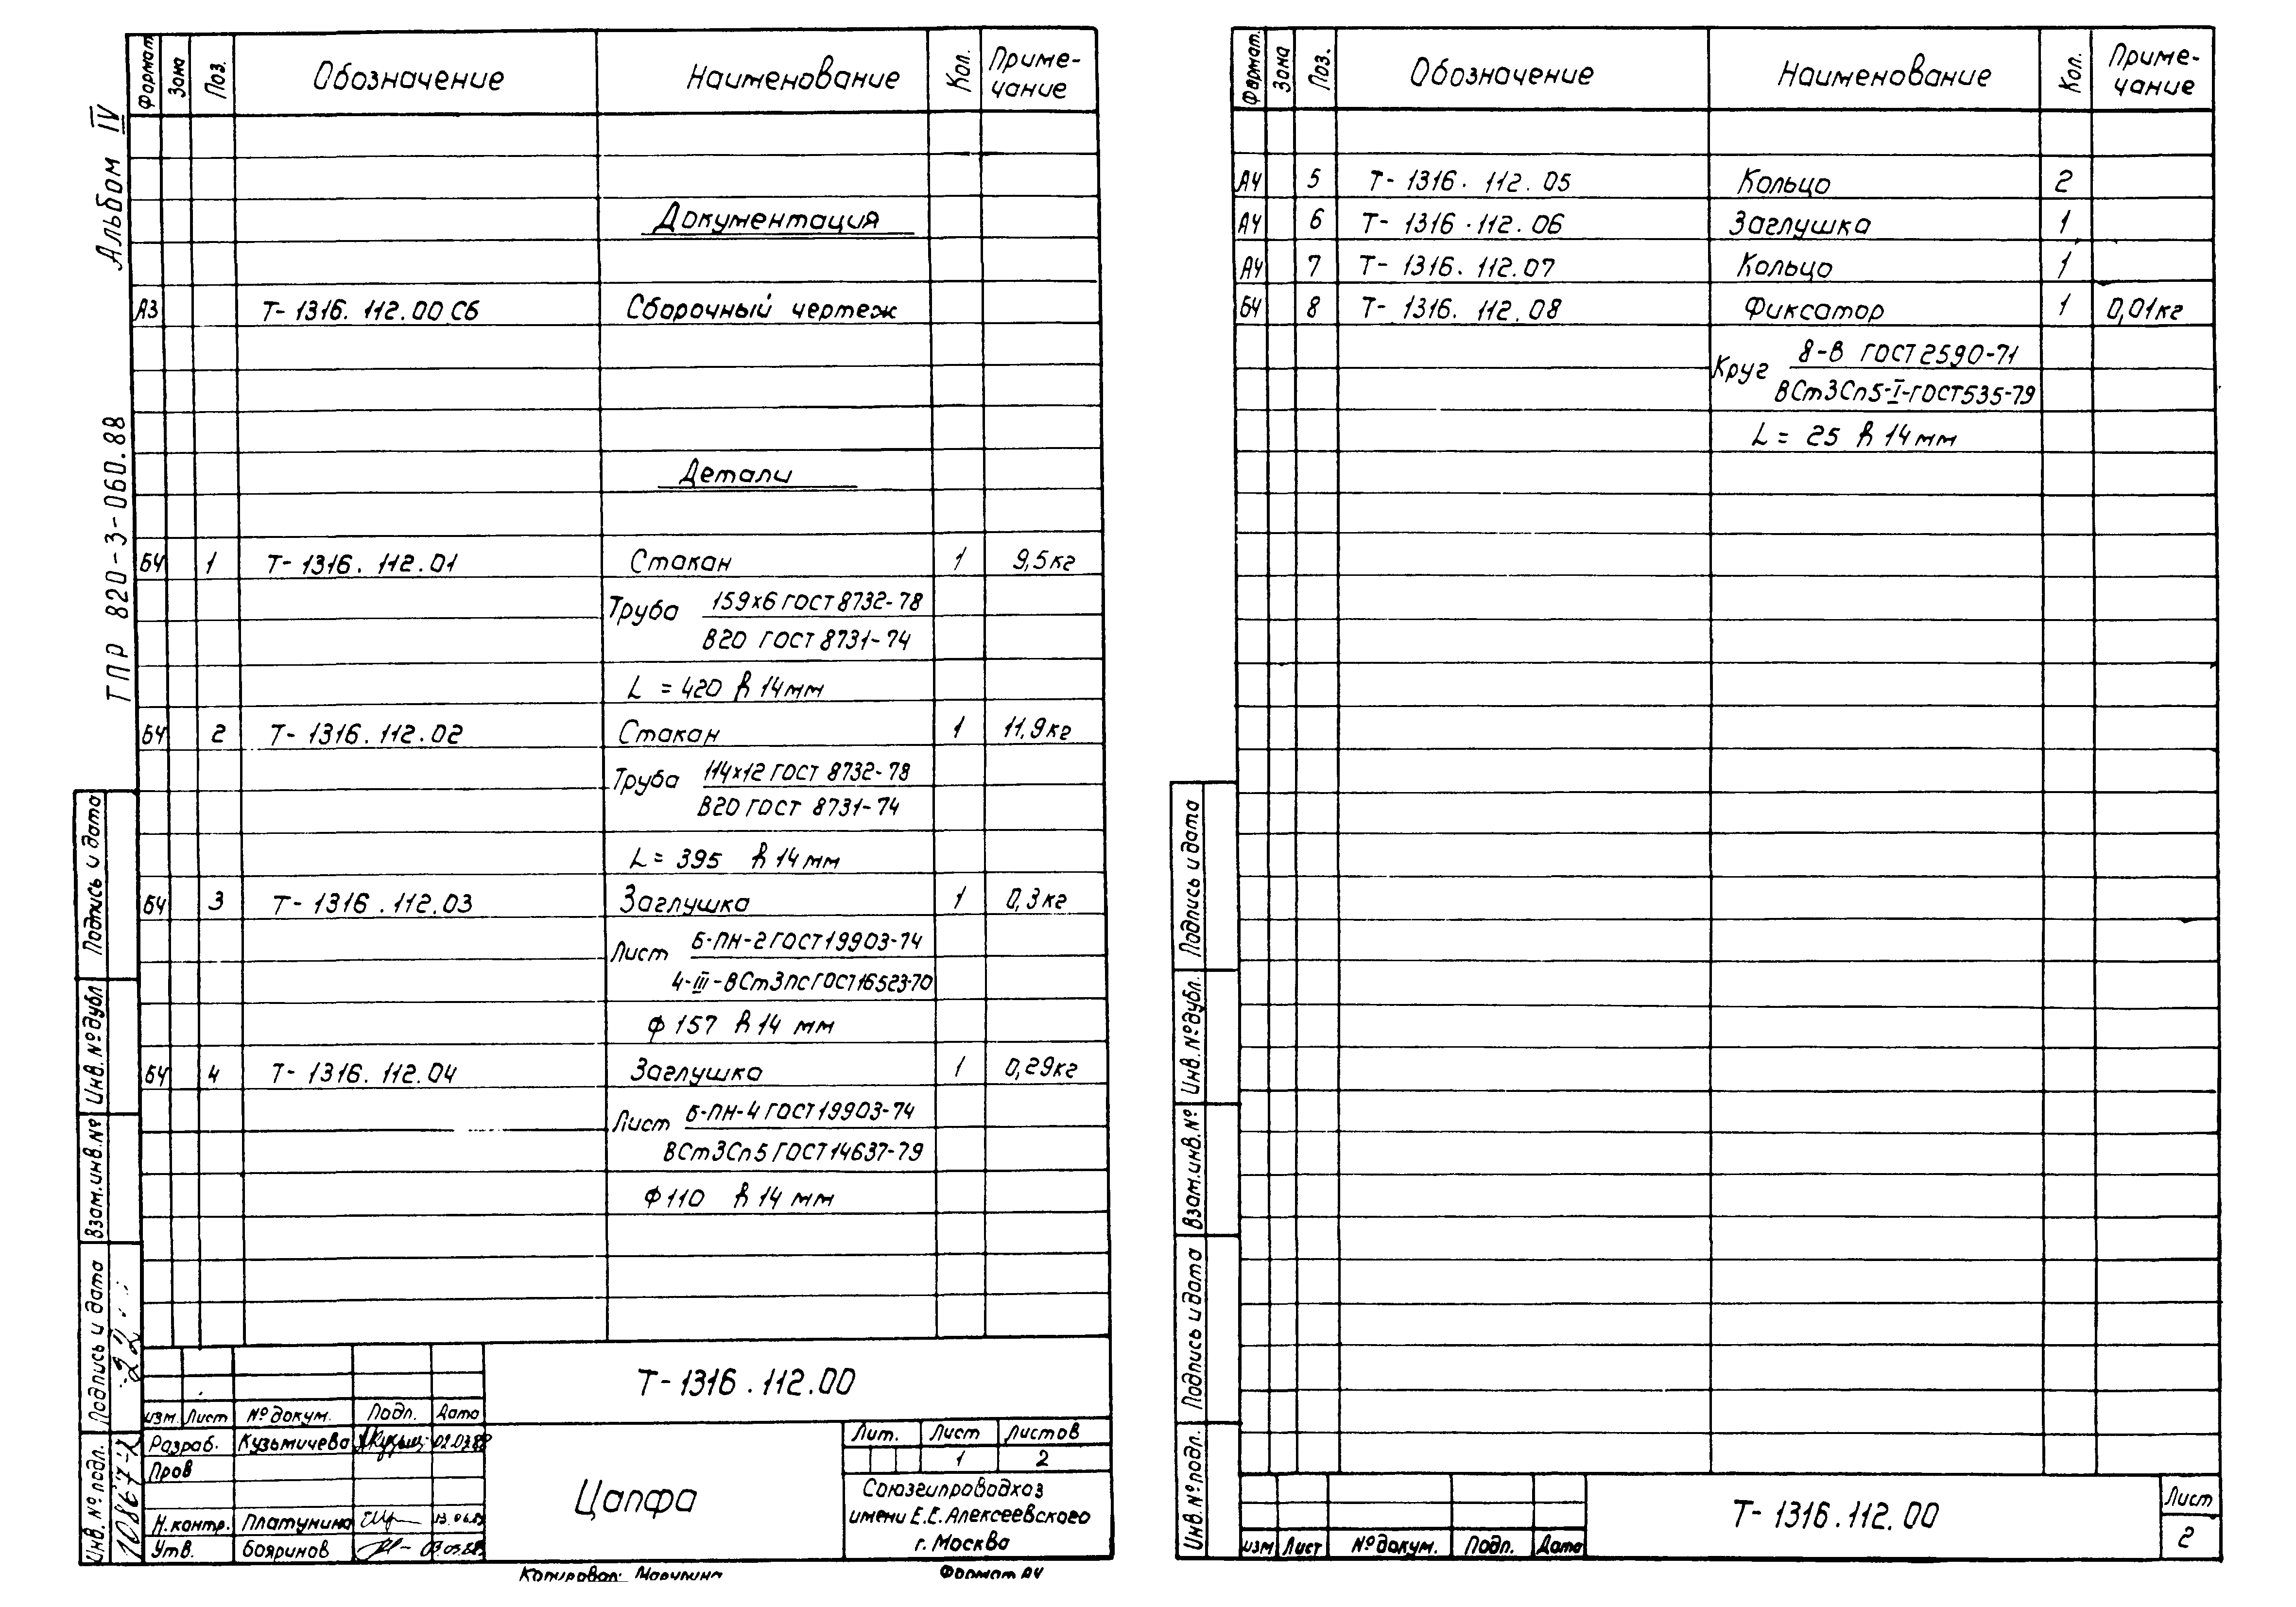 Альбом IV
ТПР 820-3-060.88
Формат Зона Поз. Обозначение Наименование Кол. Приме-
чание
Документация
А3 Т-1316.112.00 Сб Сборочный чертеж
Детали
БЧ 1 Т-1316.112.01 Стакан 1 9,5кг
Труба 159х6 ГОСТ 8732-78
В20 ГОСТ 8731-74
L = 420 h14мм
БЧ 2 Т-1316.112.02 Стакан 1 11,9кг
Труба 114х12 ГОСТ 8732-78
В20 ГОСТ 8731-74
L = 395 h14мм
БЧ 3 Т-1316.112.03 Заглушка 1 0,3кг
Лист Б-ПН-2 ГОСТ 19903-74
4-III-ВСт3пс ГОСТ 16523-70
ф157 h14 мм
БЧ 4 Т-1316.112.04 Заглушка 1 0,29кг
Лист Б-ПН-4 ГОСТ 19903-74
ВСт3Сп5 ГОСТ 14637-79
ф110 h14 мм
Подпись и дата
Инв.№дубл
Взам.инв.№
Подпись и дата
Инв.№подл.
Т-1316.112.00
изм. Лист №докум. Подп. Дата
Разраб. Кузьмичева
Пров
Н.контр. Платунина
Утв. бояринов
Цапфа
Лит. Лист Листов
1 2
Союзгипроводхоз
имени Е.Е.Алексеевского
г. Москва
Копировал: Формат А4
Формат. Зона Поз. Обозначение Наименование Кол. Приме-
чание
А4 5 Т-1316.112.05 Кольцо 2
А4 6 Т-1316.112.06 Заглушка 1
А4 7 Т-1316.112.07 Кольцо 1
БЧ 8 Т-1316.112.08 Фиксатор 1 0,01кг
Круг 8-В ГОСТ 2590-71
ВСт3Сп5-I-ГОСТ535-79
L = 25 h14мм
Подпись и дата
Инв.№дубл.
Взам.инв.№
Подпись и дата
Инв.№подл.
изм Лист №докум. Подп. Дата
Т-1316.112.00
Лист
2